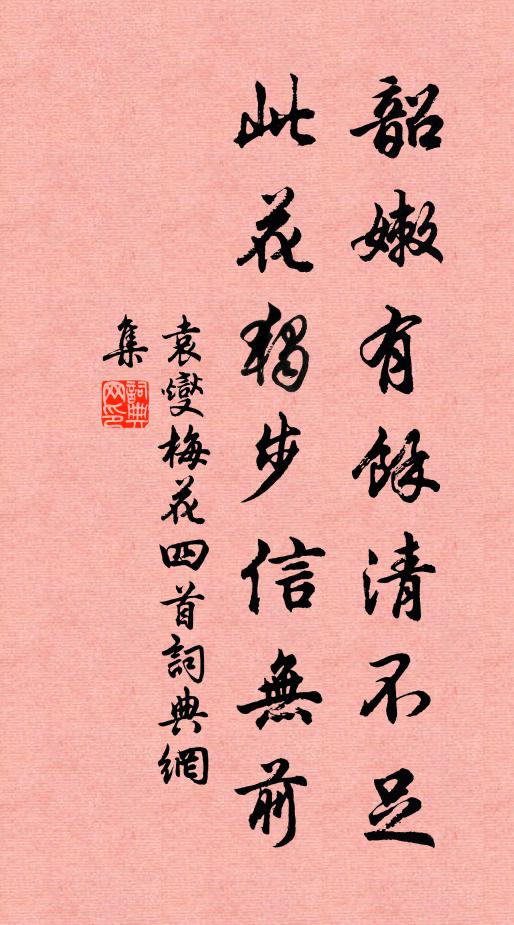 韶嫩有餘清不足
此花獨步信無前
袁燮梅花四首詞典網
集
詞典
網印